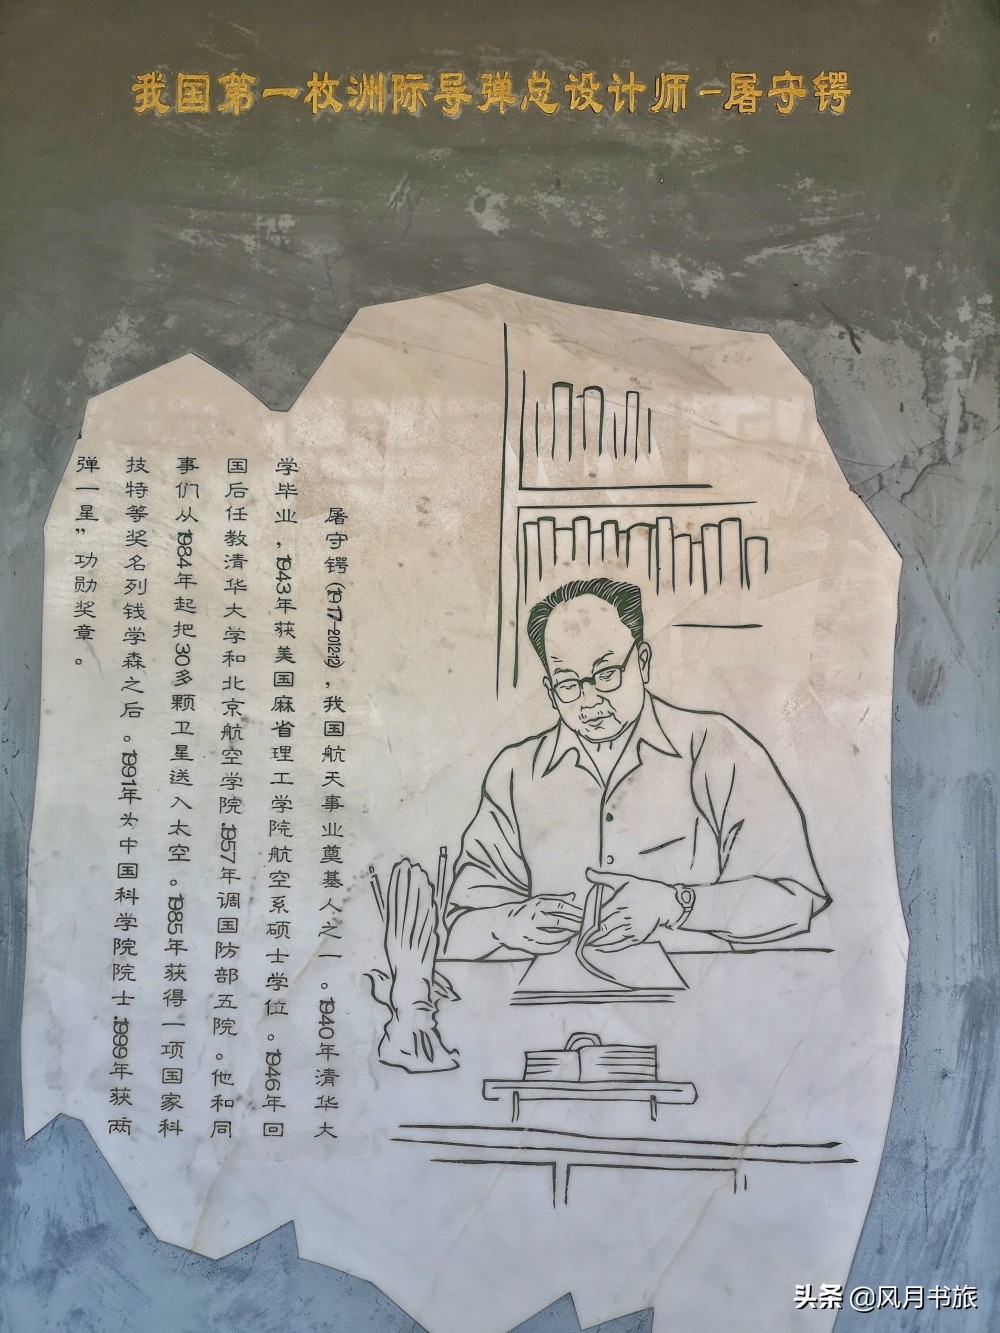 我国第一枚洲际导弹总设计师-屠守锷
屠守锷(1917-2012.12),我国航天事业奠基人之一。1940年清华大
学毕业,1943年获美国麻省理工学院航空系硕士学位。1946年回
国后任教清华大学和北京航空学院.1957年调国防部五院。他和同
事们从1984年起把30多颗卫星送入太空。1985年获得一项国家科
技特等奖名列钱学森之后。1991年为中国科学院院士.1999年获两
弹一星”功勋奖章。
头条 @风月书旅